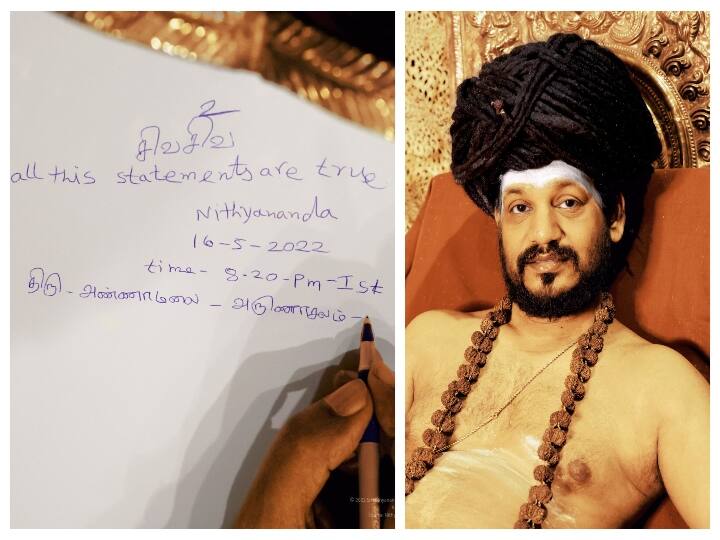 2
சிவசிவ
all this statements are true
Nithyananda
16-5-2022
time - 8.20-Pm-Ist
திரு - அண்ணாமலை - அருணாசலம் -